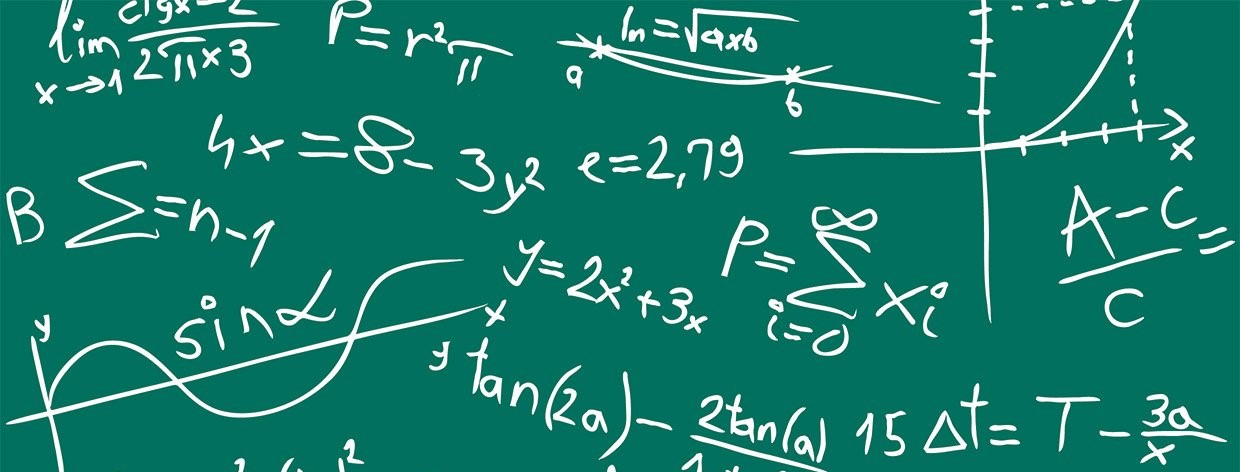 lim x→1 ctgx-2 / 2π×3
P=r²π
ln=√a×b
a
b
4x=8-3y²
e=2,79
x
B ∑=n-1
y=2x²+3x
P=∑ i=0 ∞ xᵢⁱ
A-C / C =
y
sinα
x
y
tan(2a)- 2tan(a)
15 Δt= T- 3a / x